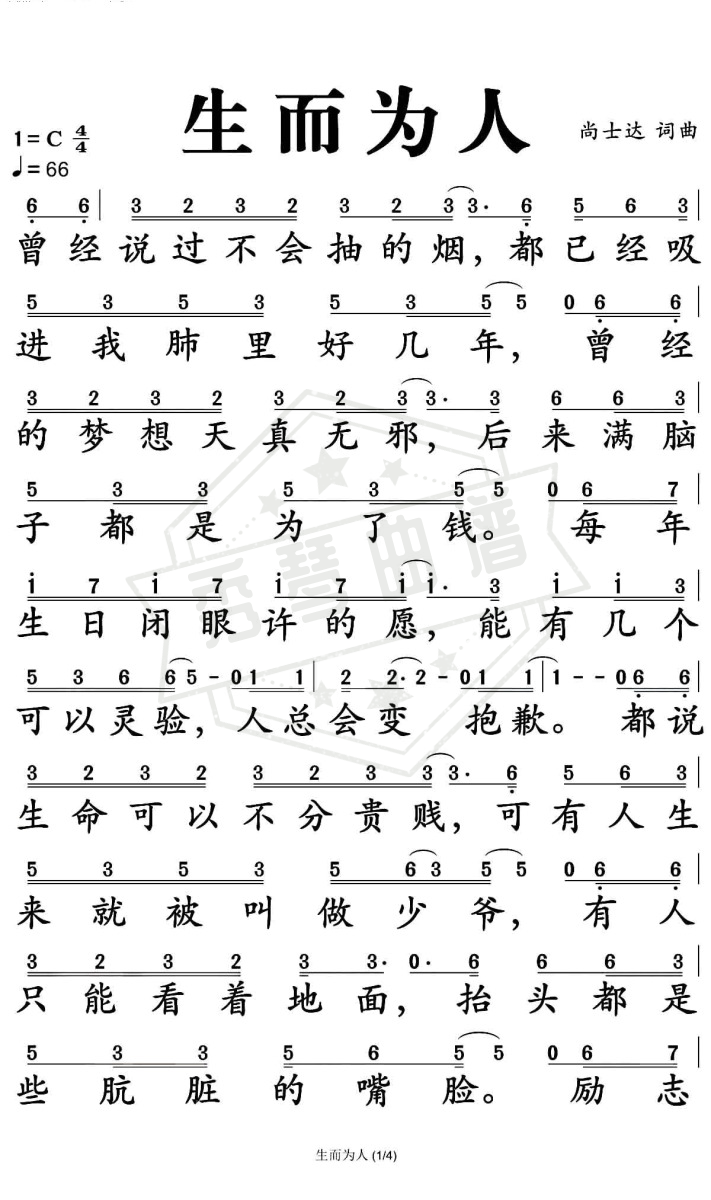 生而为人
1=C 4/4
尚士达 词曲
♩=66
6 6 | 3 2 3 2 3 2 3 3· 6 5 6 3 |
曾经说过不会抽的烟，都已经吸
5 3 5 3 5 3 5 5 0 6 6 |
进我肺里好几年，曾经
3 2 3 2 3 2 3 3· 3 6 6 3 |
的梦想天真无邪，后来满脑
5 3 3 5 3 5 5 0 6 7 |
子都是为了钱。每年
i 7 i 7 i 7 i i· 3 i i 3 |
生日闭眼许的愿，能有几个
5 3 6 6 6 5 - 0 1 1 | 2 2· 2 - 0 1 1 1 | 1 - - 0 6 6 |
可以灵验，人总会变 抱歉。都说
3 2 3 2 3 2 3 3· 6 5 6 3 |
生命可以不分贵贱，可有人生
5 3 5 3 5 6 3 5 5 0 6 6 |
来就被叫做少爷，有人
3 2 3 2 3 3· 0· 6 6 6 3 |
只能看着地面，抬头都是
5 3 3 5 6 5 5 0 6 7 |
些肮脏的嘴脸。励志
生而为人 (1/4)